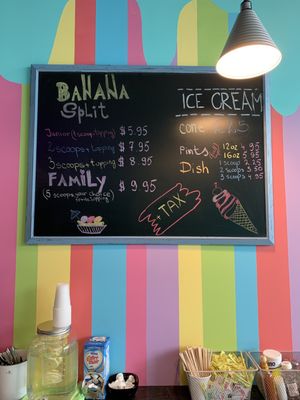 BANANA
Split
Junior (1 scoop + topping) $5.95
2 scoops + topping $7.95
3 scoops + topping $8.95
FAMILY $9.95
(5 scoops your choice
+ TAX
ICE CREAM
cone
Pints 12oz 4.95
16oz 5.95
Dish 1 scoop 2.25
2 scoops 3.50
3 scoops 4.95